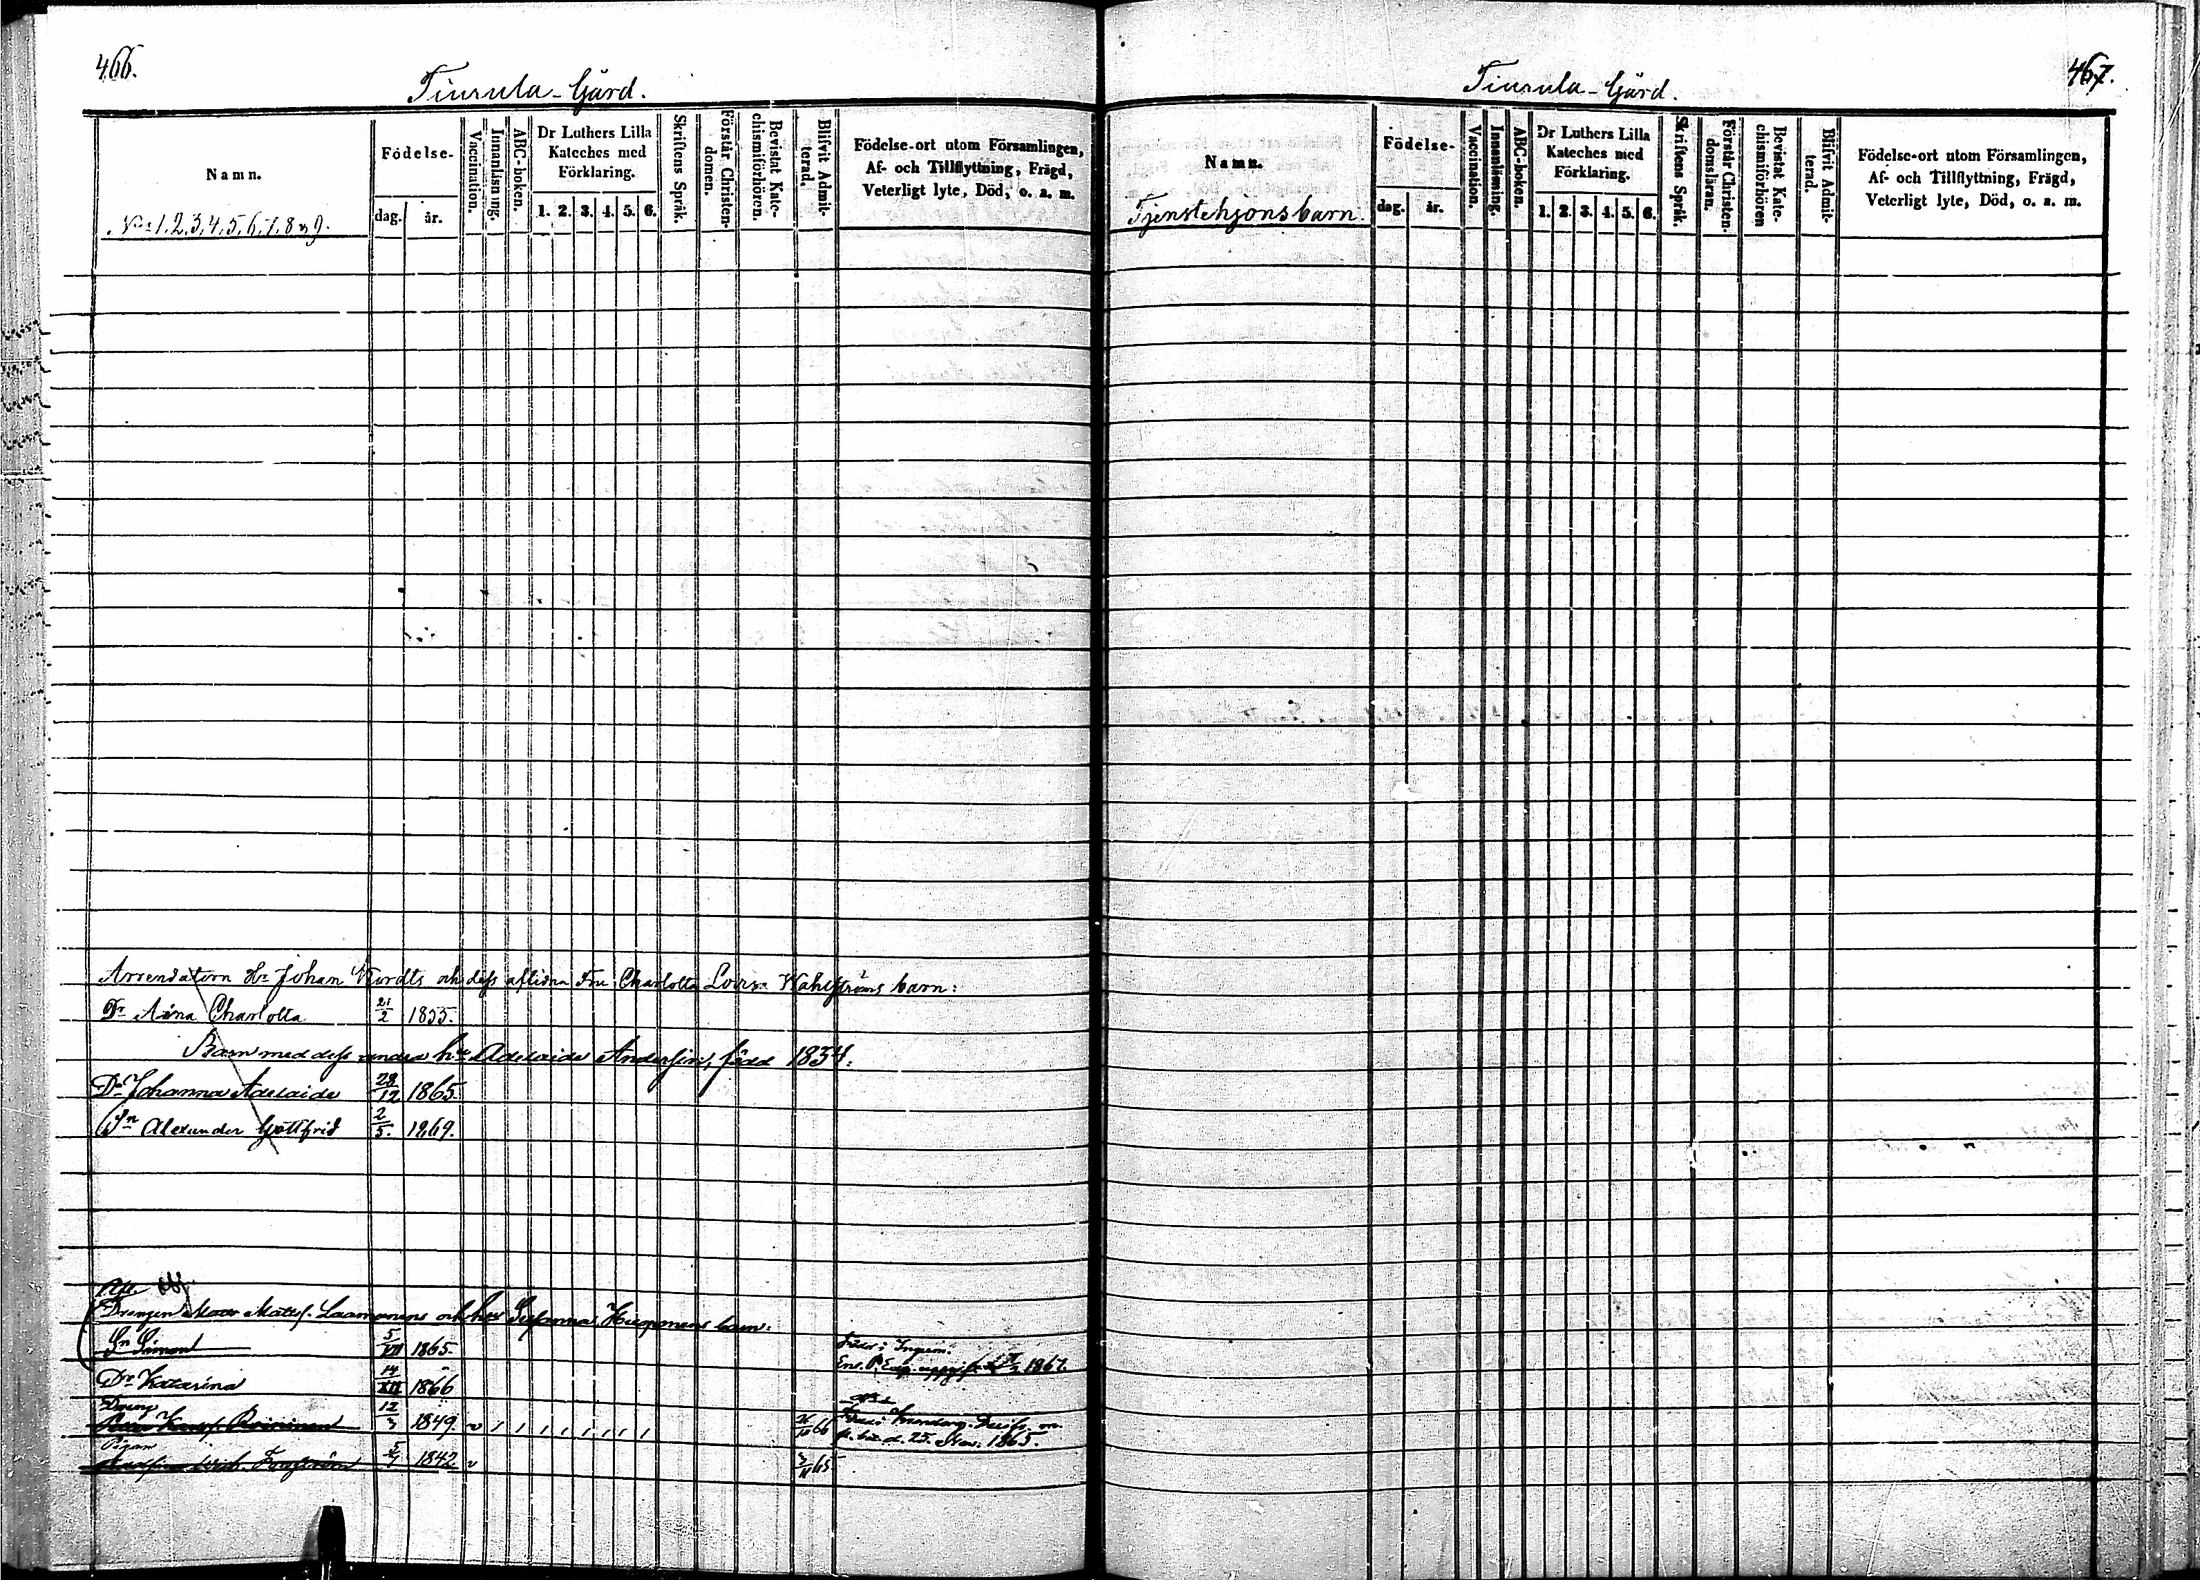 466.
Tiurula-Gård.
Namn.
N:o 1, 2, 3, 4, 5, 6, 7, 8 o 9.
Födelse-
dag.
år.
Vaccination.
Innanläsning.
ABC-boken.
Dr Luthers Lilla
Kateches med
Förklaring.
1. 2. 3. 4. 5. 6.
Skriftens Språk.
Förstår Christen-
domen.
Bevistat Kate-
chismiförhören.
Blifvit Admit-
terad.
Födelse-ort utom Församlingen,
Af- och Tillflyttning, Frägd,
Veterligt lyte, Död, o. a. m.
Arrendatorn Hr Johan och dess aflidna Fru Charlotta Lovisa Wahlströms barn:
Dr Aina Charlotta 21/2 1855.
Barn med dess andra h:u Adelaide Andersin, född 1834:
Dr Johanna Adelaide 28/12 1865.
Sn Alexander Gottfrid 2/5. 1869.
Drengen Matts Mattss. Laamanens och hus Susanna Huoponens barn:
Sn Simon 5/VII 1865. Född i
1867.
Dr Katarina 14/XII 1866
Dreng
12/3 1849. v / / / / / / / 66
d. 25. Nov. 1865.
Pigan
5/4 1842 v 65.
467.
Tiurula-Gård.
Namn.
Tjenstehjonsbarn.
Födelse-
dag.
år.
Vaccination.
Innanläsning.
ABC-boken.
Dr Luthers Lilla
Kateches med
Förklaring.
1. 2. 3. 4. 5. 6.
Skriftens Språk.
Förstår Christen-
domsläran.
Bevistat Kate-
chismiförhören
Blifvit Admit-
terad.
Födelse-ort utom Församlingen,
Af- och Tillflyttning, Frägd,
Veterligt lyte, Död, o. a. m.